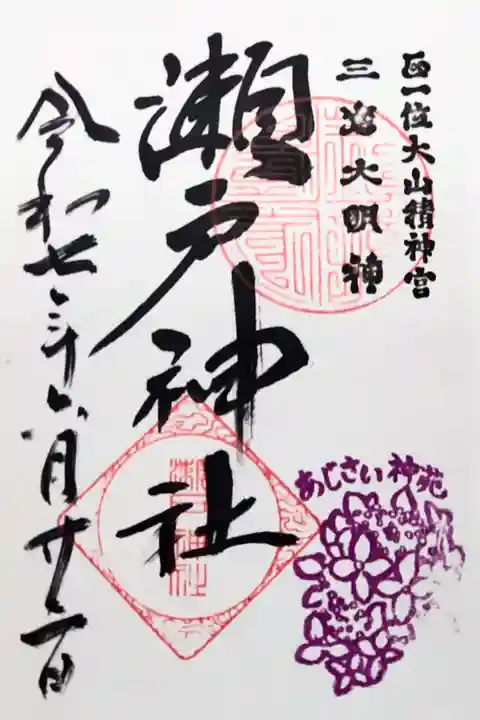 正一位大山積神宮
三岩大明神
瀬戸神社
令和七年六月廿二日
あじさい神苑